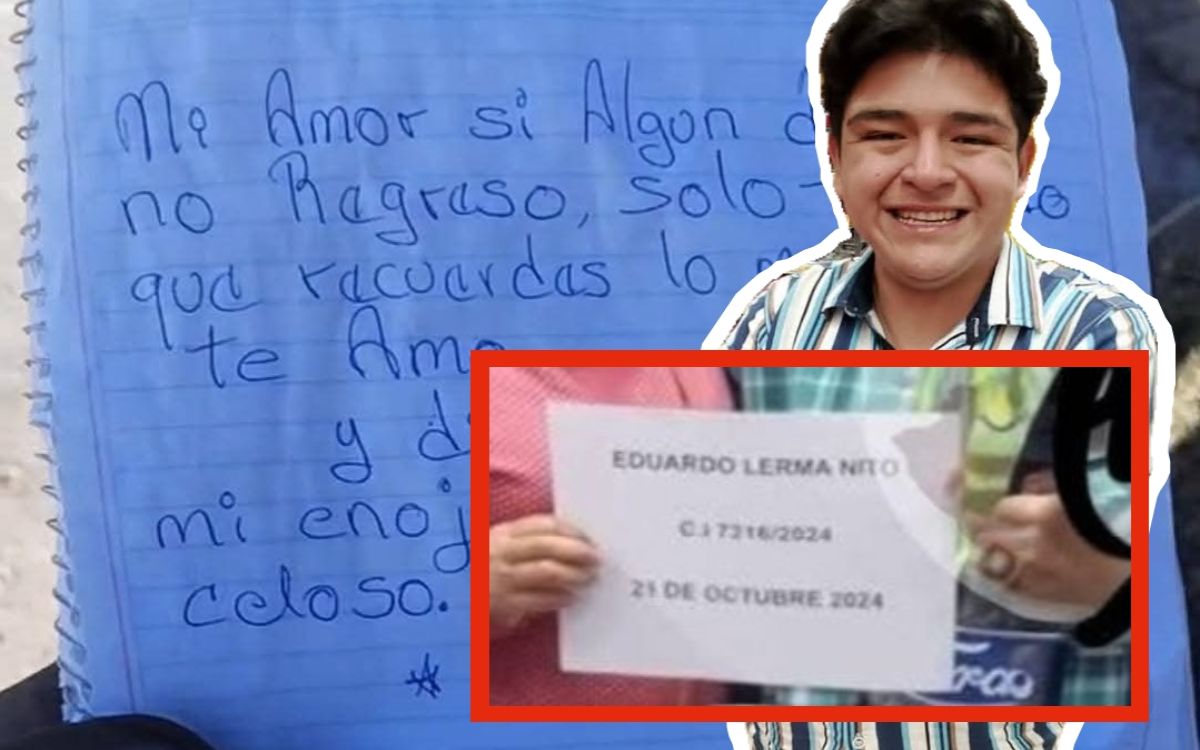 Mi Amor si Algun
no Regreso, solo
que recuerdas lo
te Amo
y
mi
celoso.
EDUARDO LERMA NITO
C.I
21 DE OCTUBRE 2024